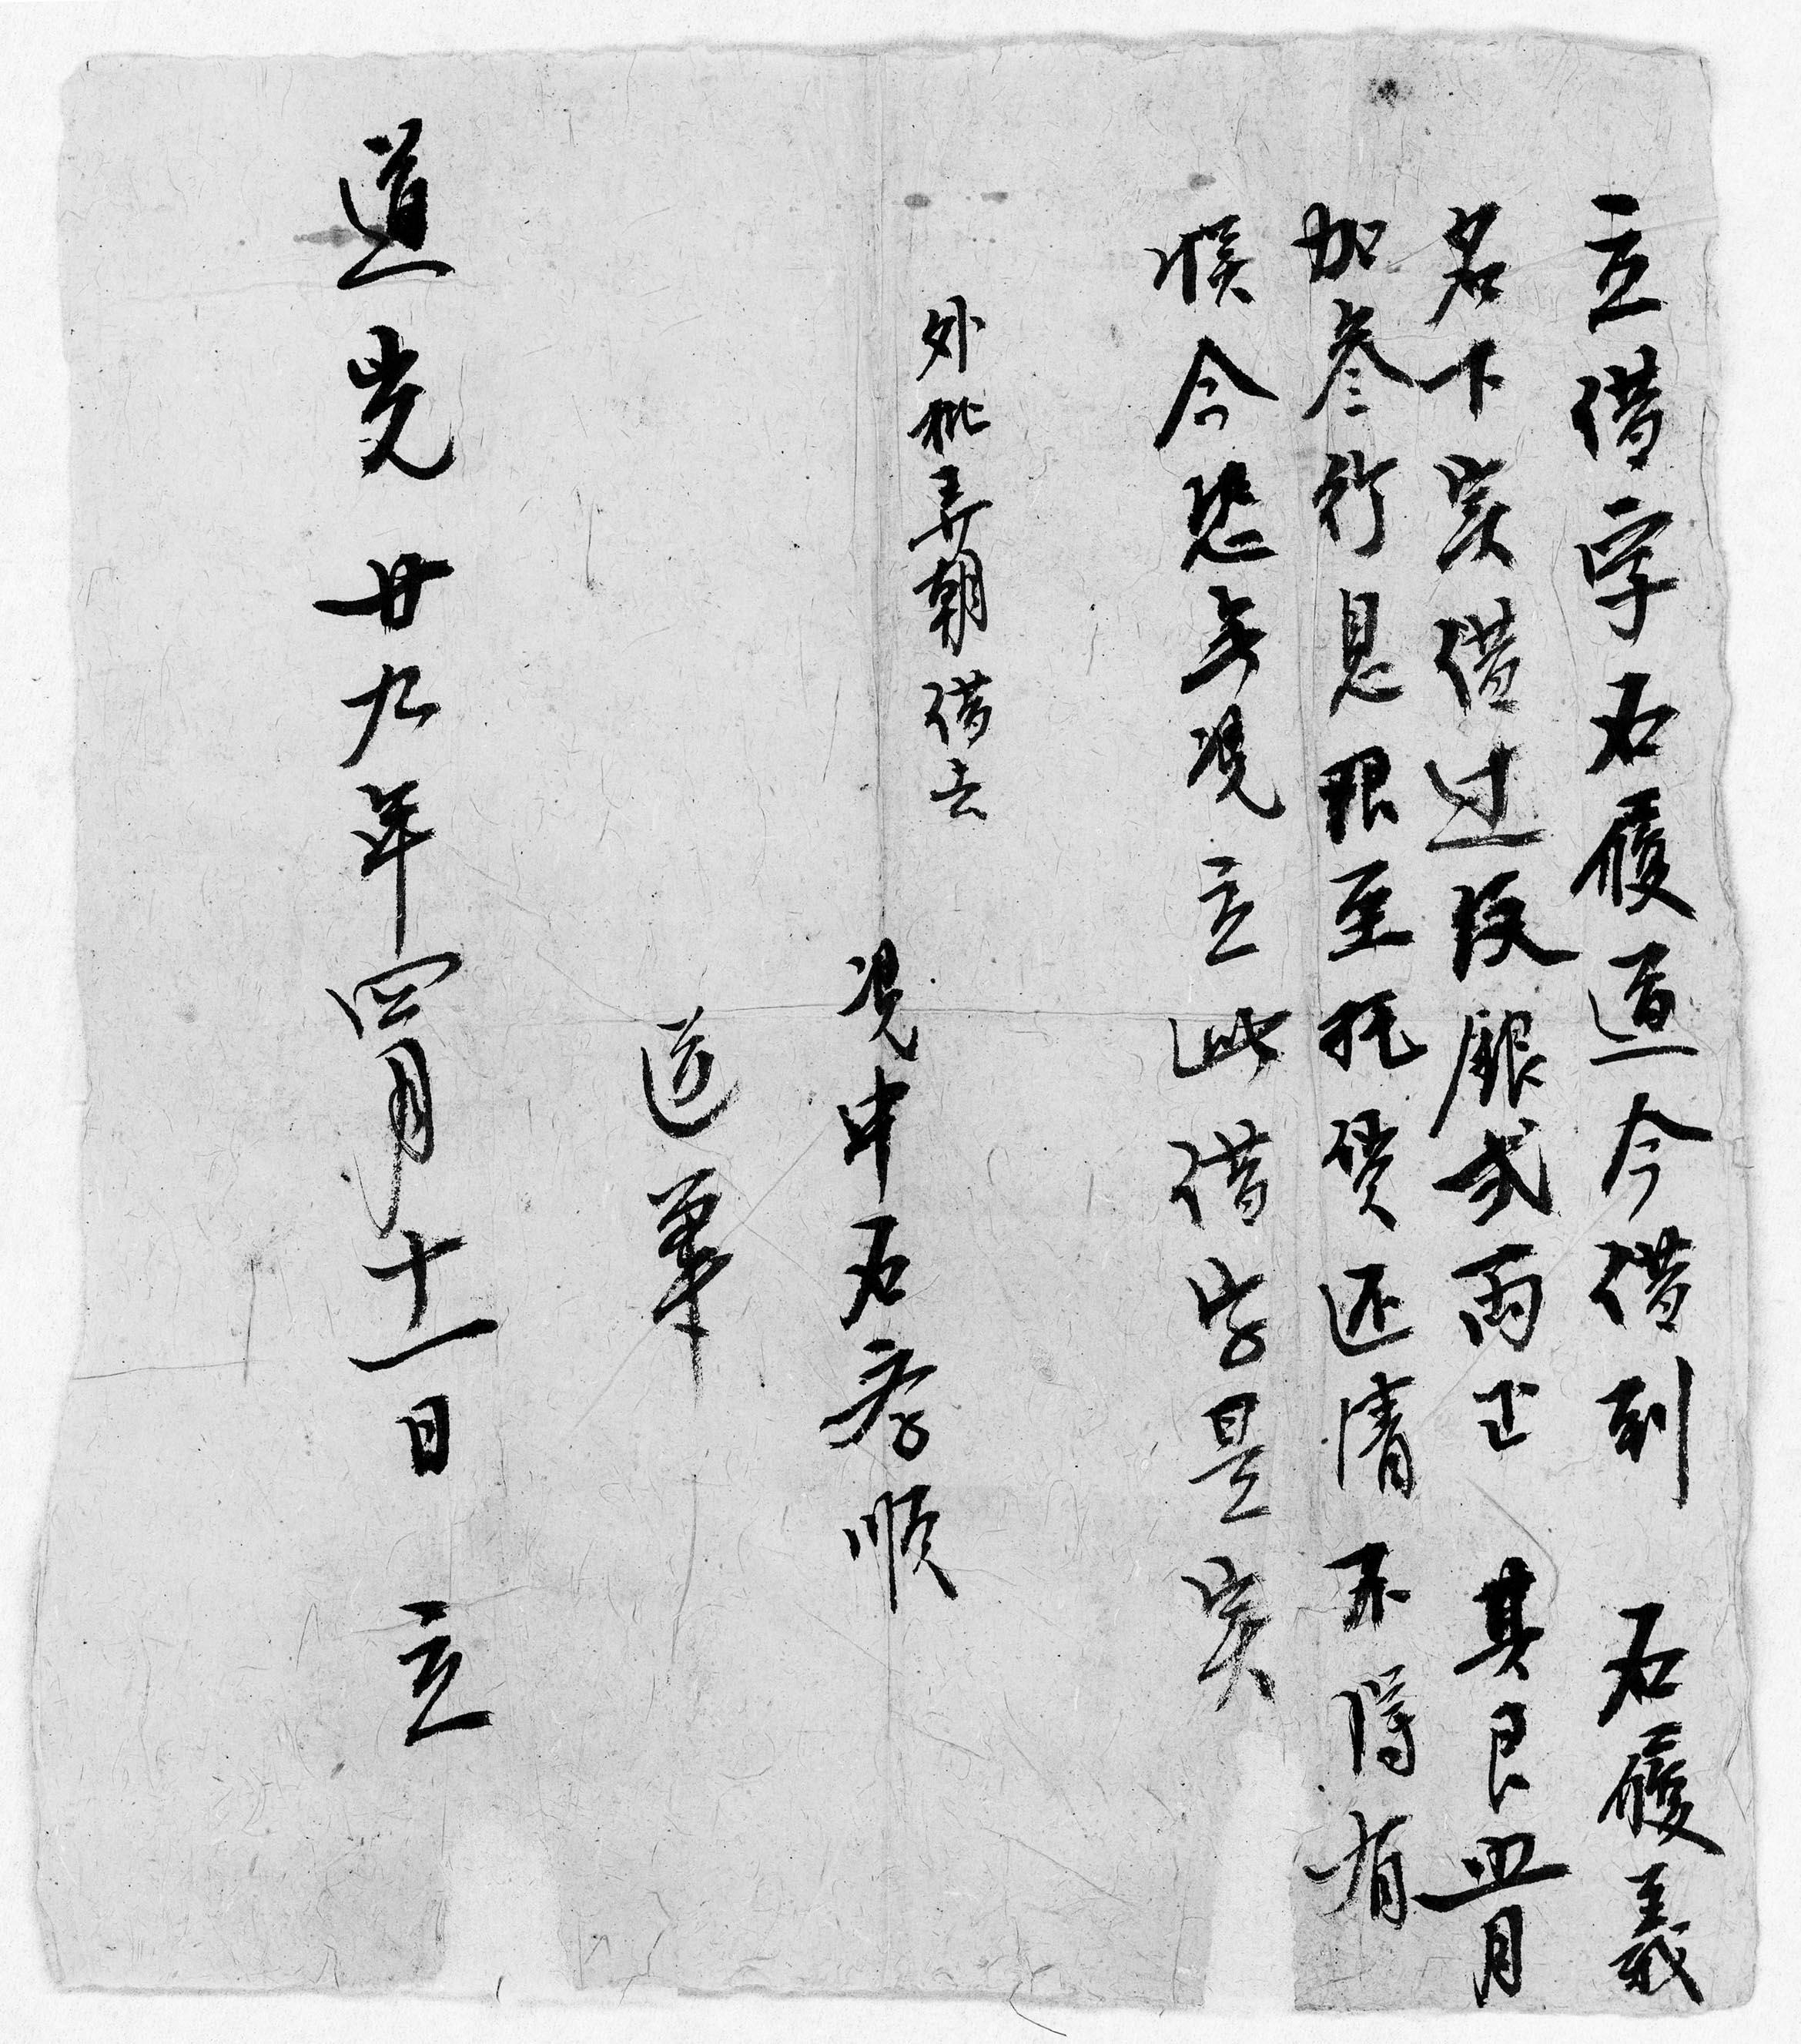 立借字石履道今借到 石履義
名下实借过纹銀弍両正 其艮無月
加叁行息限至托賃还清不得有
悮今恐無凴立此借字是实
外批弄朝借去
凴中石孝順
道筆
道光廿九年四月十一日 立